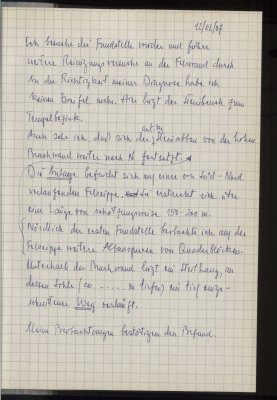 12/02/87
Ich besuche die Fundstelle wieder und führe
weitere Reinigungsversuche an der Felswand durch.
An der Richtigkeit meiner Diagnose habe ich
keinen Zweifel mehr. Hier liegt der Steinbruch zum
Tempelbezirk.
Auch sehe ich, daß sich der antike Steinabbau von der hohen
Bruchwand weiter nach N fortsetzt.
Die Anlage befindet sich auf einer von Süd-Nord
verlaufenden Felsrippe. Sie erstreckt sich über
eine Länge von schätzungsweise 150-200 m.
Nördlich der ersten Fundstelle beobachte ich auf der
Felsrippe weitere Abbauspuren von Quaderblöcken.
Unterhalb der Bruchwand liegt ein Steilhang, an
dessen Sohle (ca. ..... m tiefer) ein tief einge-
schnittener Weg verläuft.
Meine Beobachtungen bestätigen den Befund.